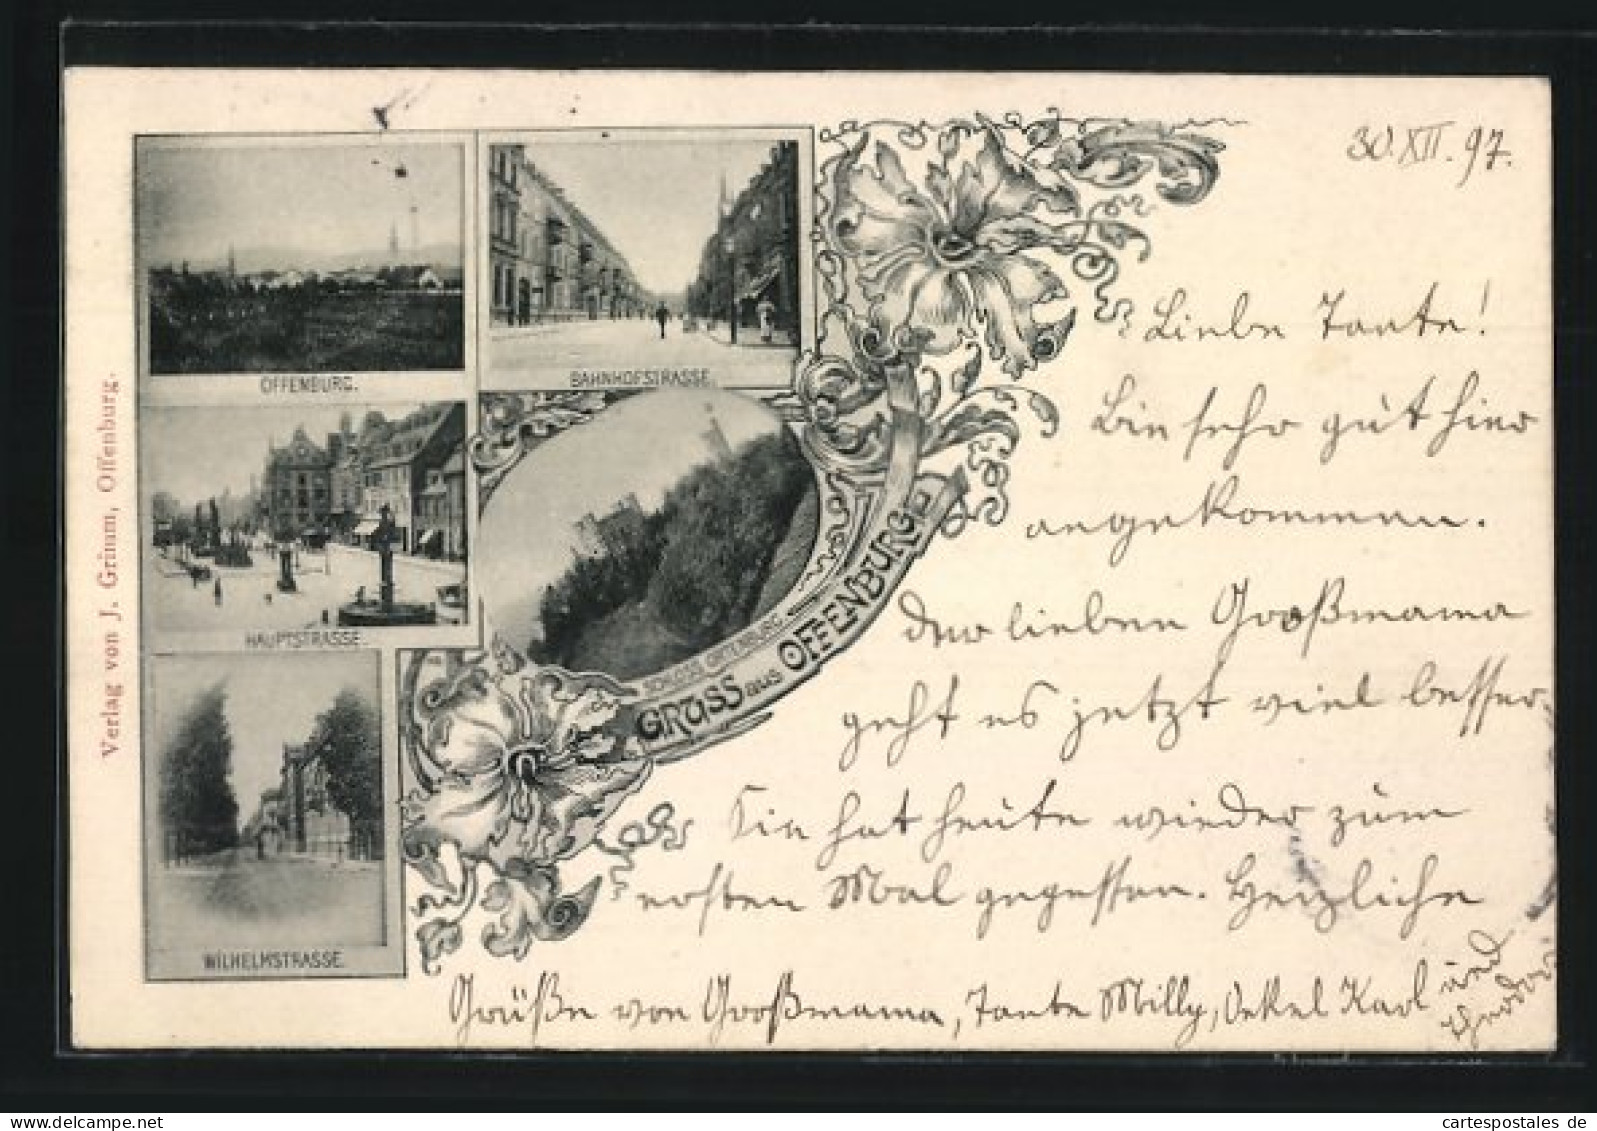 30.XII.97.
Verlag von J. Grimm, Offenburg.
OFFENBURG.
BAHNHOFSTRASSE.
HAUPTSTRASSE.
SCHLOSS ORTENBURG
GRUSS aus OFFENBURG
WILHELMSTRASSE.
Liebe Tante!
Bin sehr gut hier
angekommen.
Der lieben Großmama
geht es jetzt viel besser.
Sie hat heute wieder zum
ersten Mal gegessen. Herzliche
Grüße von Großmama, Tante Milly, Onkel Karl und
Theodor.
cartespostales de